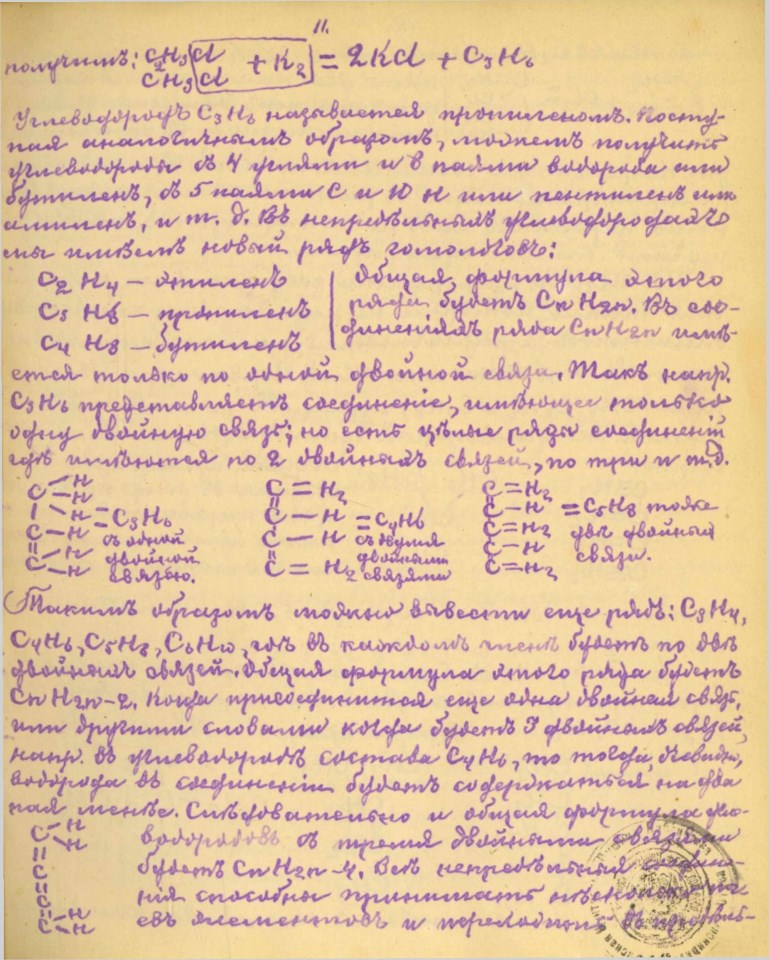 11.
получимъ: CH3Cl + K2 = 2KCl + C3H6
CH3Cl
Углеводородъ C3H6 называется пропиленомъ. Посту-
пая аналогичнымъ образомъ, можемъ получить
углеводороды съ 4 углями и 8 паями водорода или
бутиленъ, съ 5 паями C и 10 H или пентиленъ или
амиленъ, и т. д. Въ непредѣльныхъ углеводородахъ
мы имѣемъ новый рядъ гомологовъ:
C2H4 – этиленъ
C3H6 – пропиленъ
C4H8 – бутиленъ
Общая формула этого
ряда будетъ CnH2n. Въ сое-
диненіяхъ ряда CnH2n имѣ-
ется только по одной двойной связи. Такъ напр.
C3H6 представляетъ соединеніе, имѣющее только
одну двойную связь; но есть цѣлые ряды соединеній
гдѣ имѣются по 2 двойныхъ связей, по три и т.д.
C – H
– H
C – H = C3H6
C – H
– H
съ одной
двойной
связью.
C = H2
C
C – H = C4H6
C – H
C = H2
съ двумя
двойными
связями
C = H2
C – H = C5H8 тоже
C = H2
C – H
C = H2
двѣ двойныя
связи.
Такимъ образомъ можно вывести еще рядъ: C3H4,
C4H6, C5H8, C6H10, гдѣ въ каждомъ членѣ будетъ по двѣ
двойныхъ связей. Общая формула этого ряда будетъ
CnH2n-2. Когда присоединится еще одна двойная связь,
или другими словами когда будетъ 3 двойныхъ связей,
напр. въ углеводородѣ состава C4H6, то тогда, очевидно,
водорода въ соединеніи будетъ содержаться на два
пая менѣе. Слѣдовательно и общая формула угле-
водородовъ съ тремя двойными связями
будетъ CnH2n-4. Всѣ непредѣльныя соедине-
нія способны принимать нѣсколько па-
евъ элементовъ и переходить въ предѣль-
C – H
– H
C
C
C – H
– H